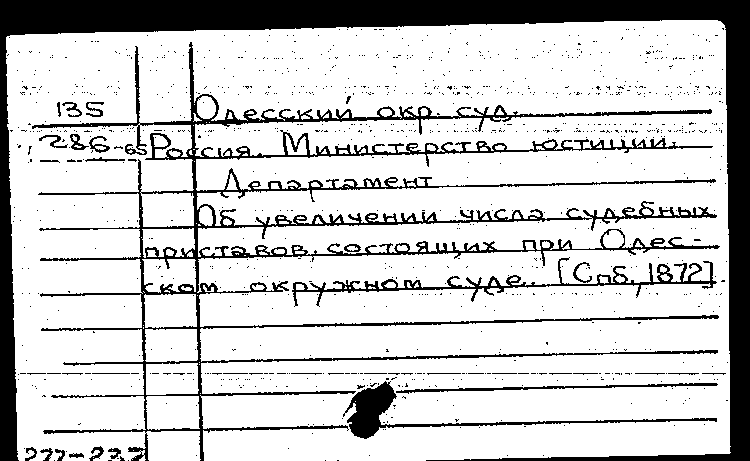 135 Одесский окр. суд.
286-65 Россия. Министерство юстиции.
Департамент
Об увеличении числа судебных
приставов, состоящих при Одес-
ском окружном суде. [Спб., 1872]